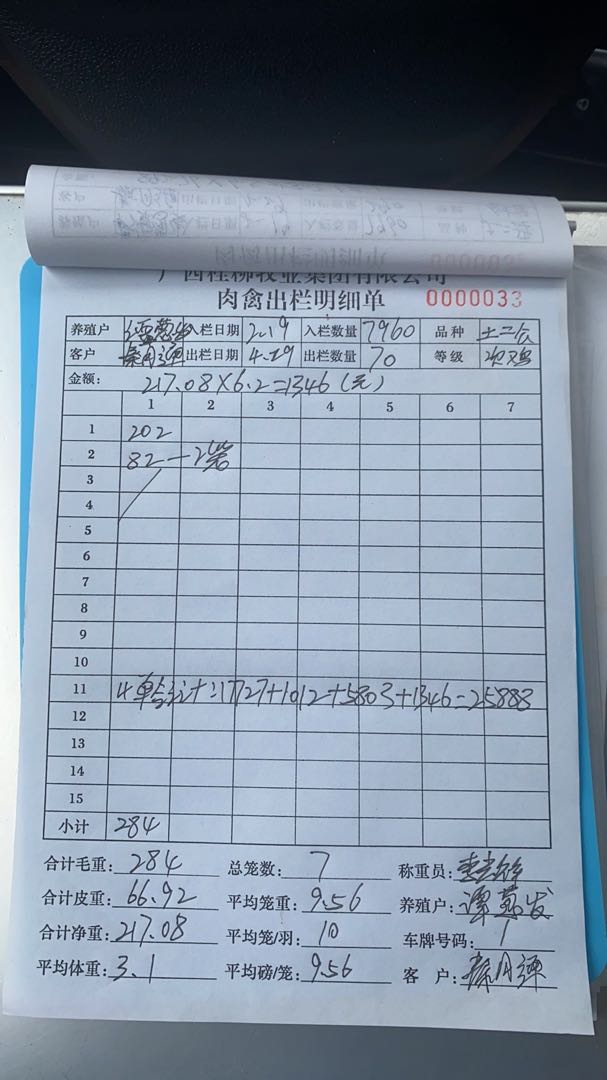 广西桂柳牧业集团有限公司
肉禽出栏明细单 0000033
养殖户 谭苟发 入栏日期 2.19 入栏数量 7960 品种 土二
客户 秦月 出栏日期 4.29 出栏数量 70 等级 次鸡
金额: 217.08×6.2=1346(元)
1 2 3 4 5 6 7
1 202
2 82—2笼
3
4
5
6
7
8
9
10
11 4单合计:17727+1012+5803+1346=25888
12
13
14
15
小计 284
合计毛重: 284 总笼数: 7 称重员:
合计皮重: 66.92 平均笼重: 9.56 养殖户: 谭苟发
合计净重: 217.08 平均笼/羽: 10 车牌号码: /
平均体重: 3.1 平均磅/笼: 9.56 客 户: 秦月